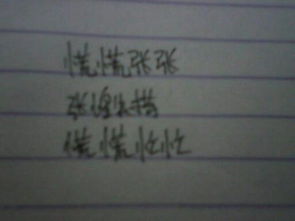 慌慌张张
张皇失措
慌慌忙忙